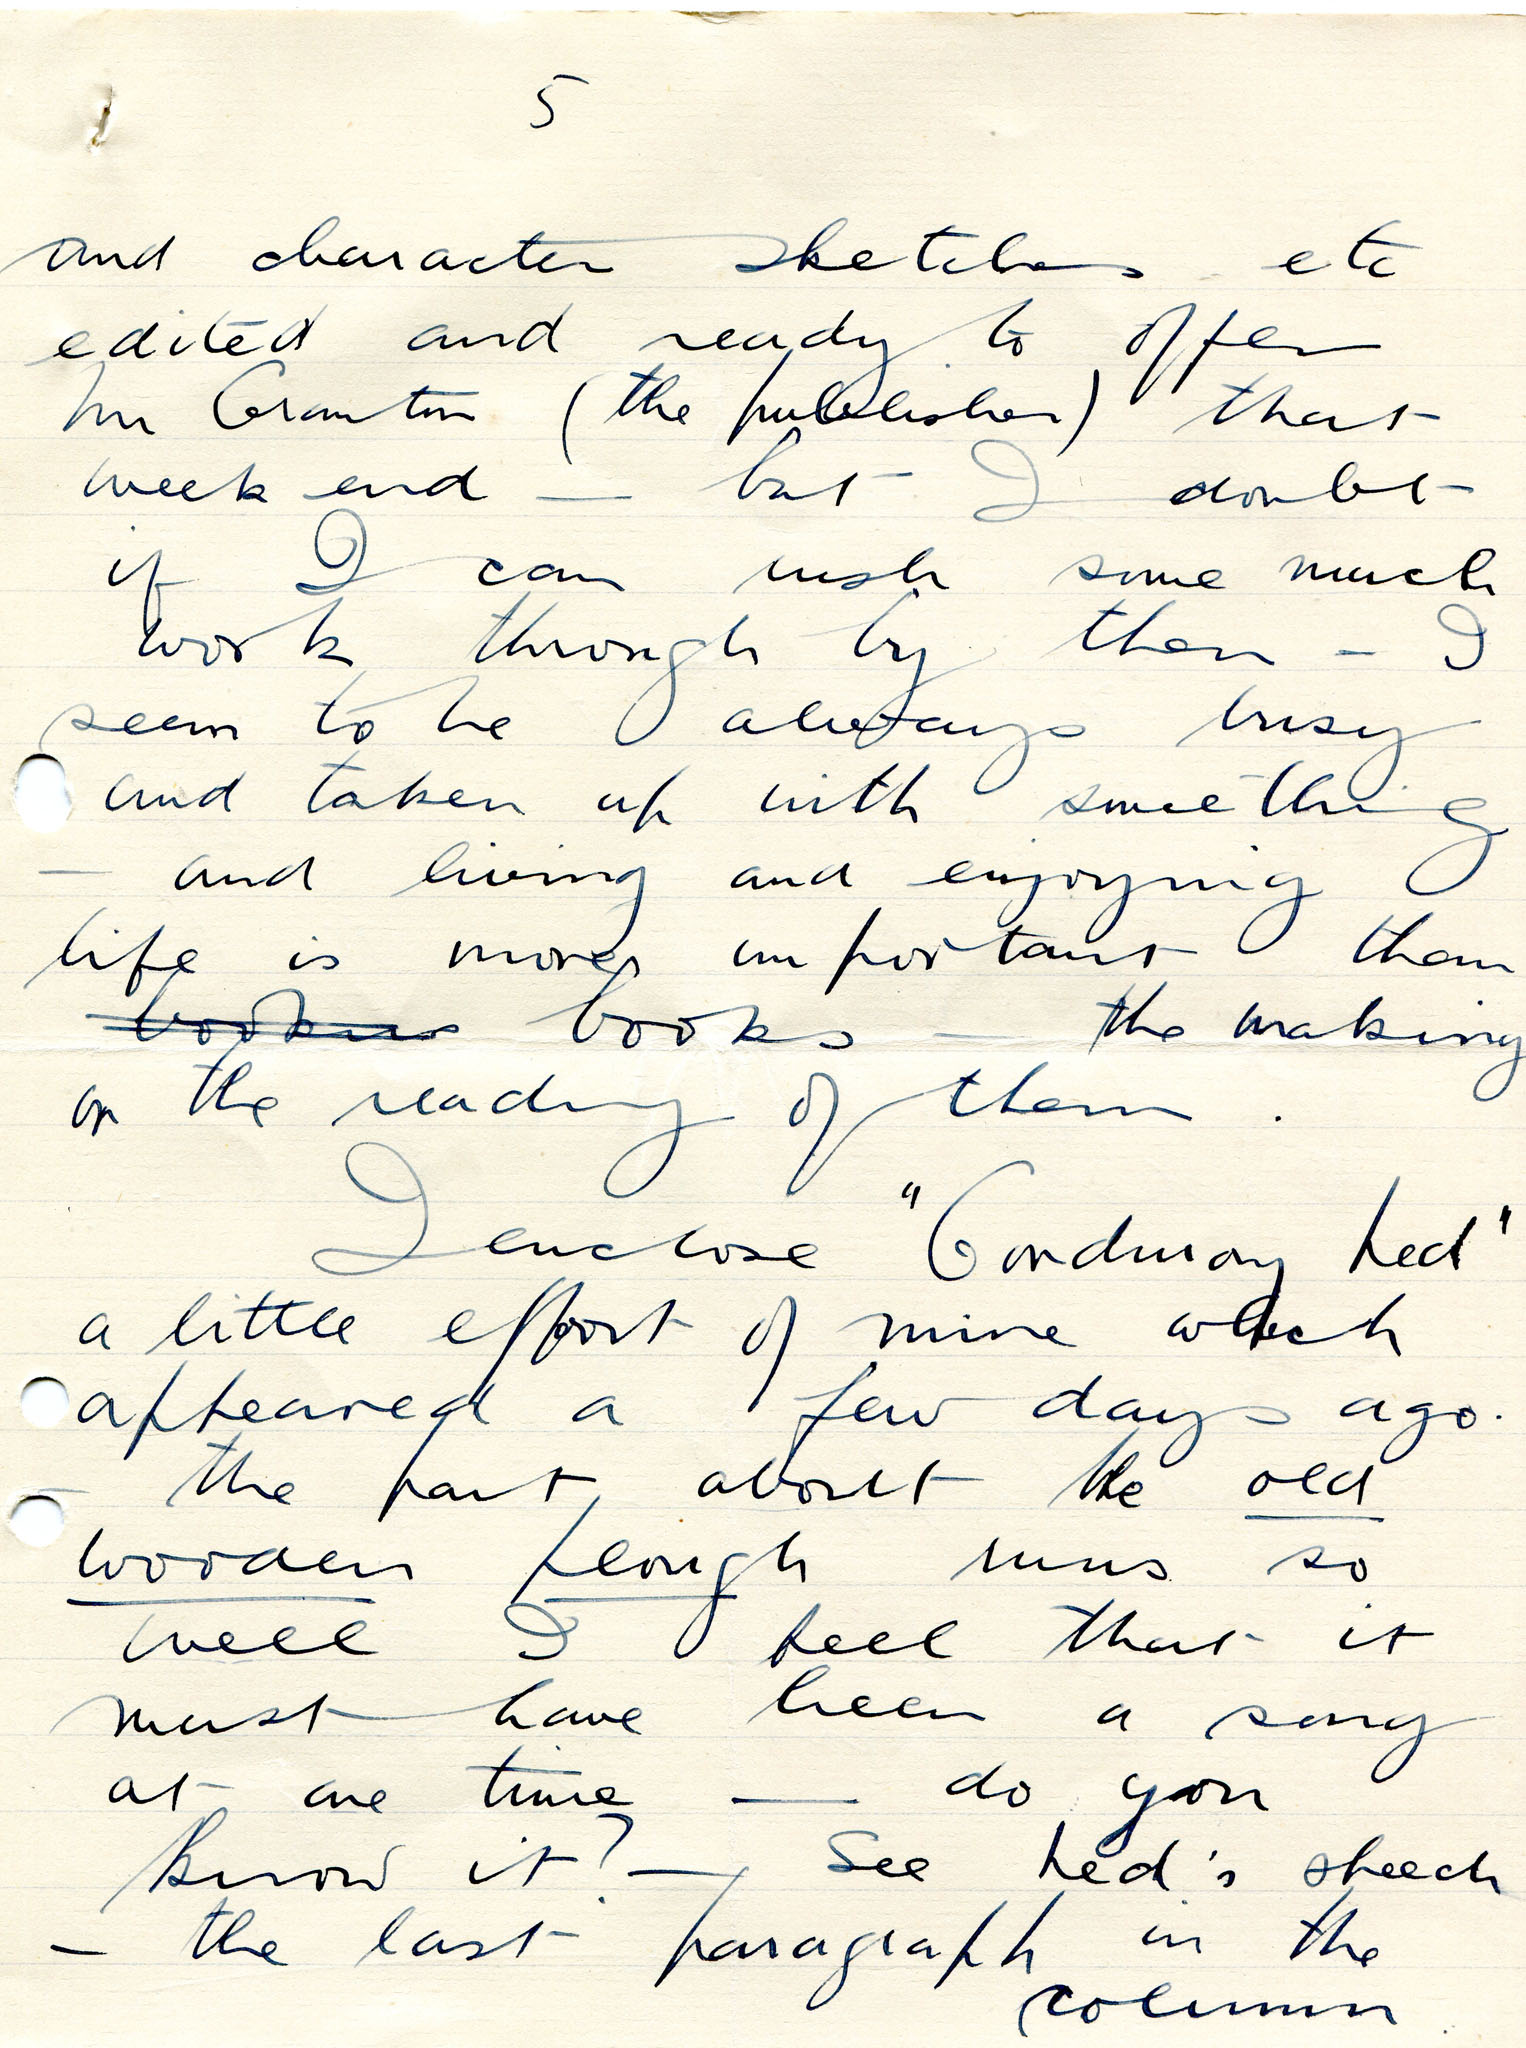 5
and character sketches etc
edited and ready to offer
Mr Cranton (the publisher) that
week end — but I doubt
if I can rush some much
work through by then — I
seem to be always busy
and taken up with something
— and living and enjoying
life is more important than
books — the making
or the reading of them.
I enclose "Corduroy Ted"
a little effort of mine which
appeared a few days ago.
— the part about the old
wooden plough runs so
well I feel that it
must have been a song
at one time — do you
know it? — See Ted's speech
— the last paragraph in the
column